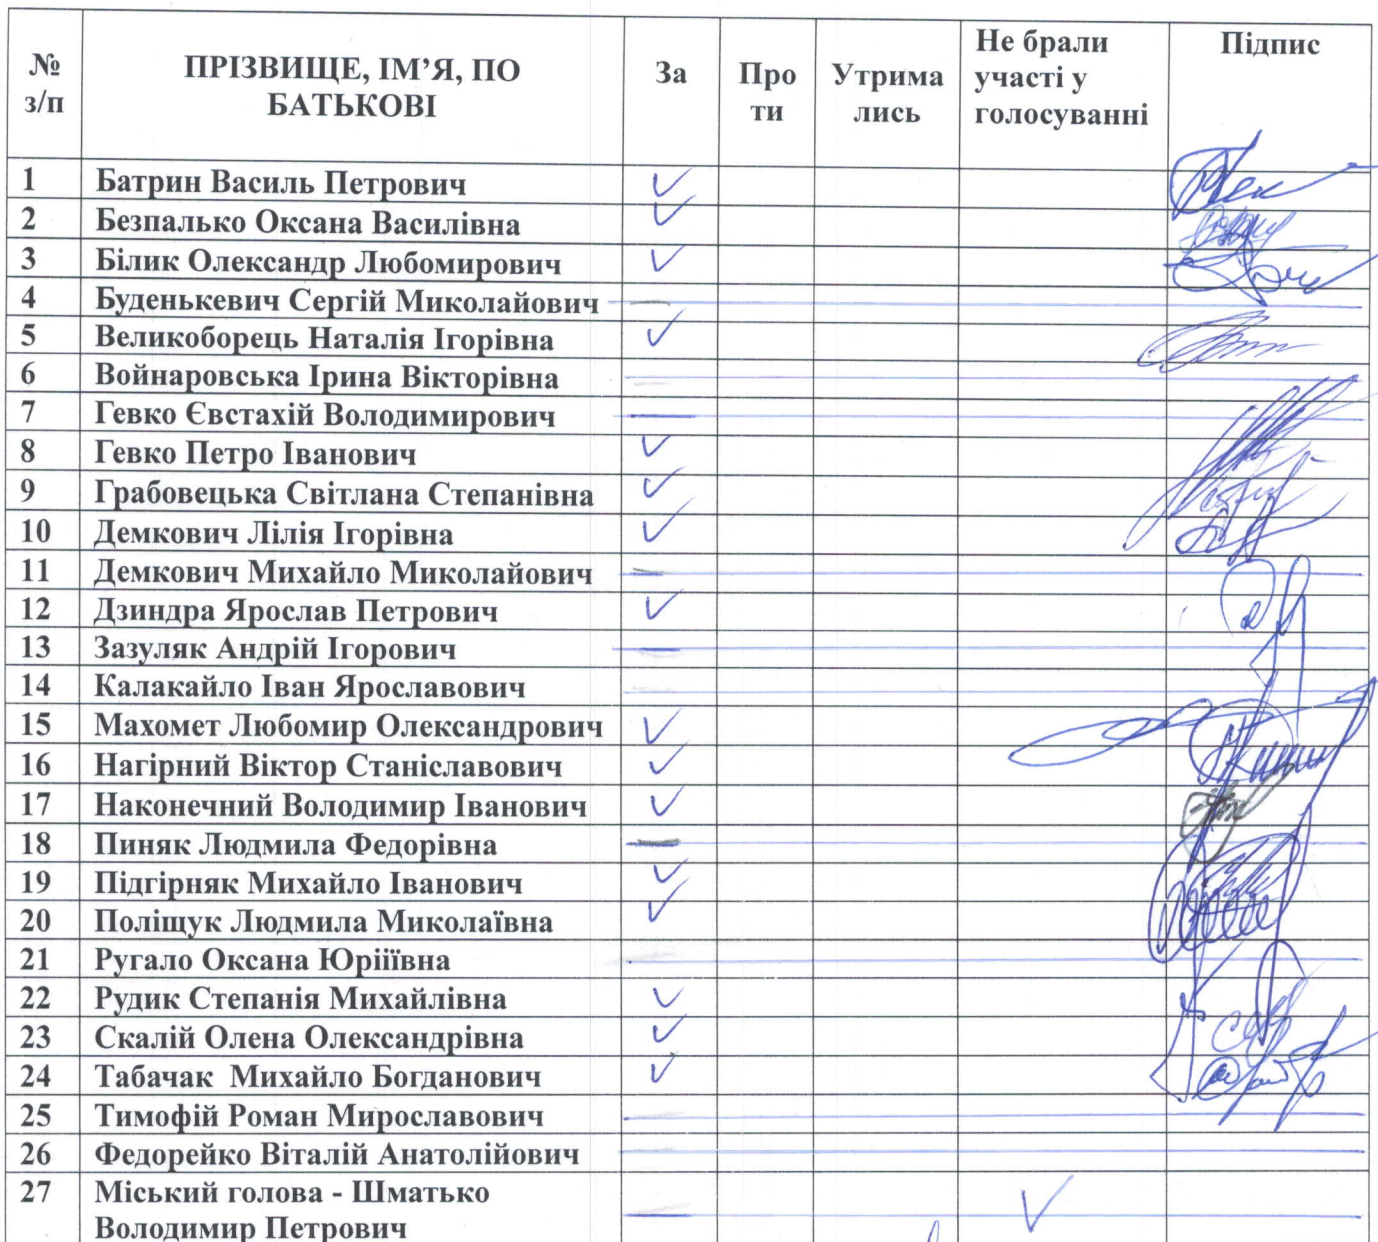 № з/п ПРІЗВИЩЕ, ІМ’Я, ПО БАТЬКОВІ За Про ти Утрима лись Не брали участі у голосуванні Підпис
1 Батрин Василь Петрович ✓
2 Безпалько Оксана Василівна ✓
3 Білик Олександр Любомирович ✓
4 Буденькевич Сергій Миколайович
5 Великоборець Наталія Ігорівна ✓
6 Войнаровська Ірина Вікторівна
7 Гевко Євстахій Володимирович
8 Гевко Петро Іванович ✓
9 Грабовецька Світлана Степанівна ✓
10 Демкович Лілія Ігорівна ✓
11 Демкович Михайло Миколайович
12 Дзиндра Ярослав Петрович ✓
13 Зазуляк Андрій Ігорович
14 Калакайло Іван Ярославович
15 Махомет Любомир Олександрович ✓
16 Нагірний Віктор Станіславович ✓
17 Наконечний Володимир Іванович ✓
18 Пиняк Людмила Федорівна
19 Підгірняк Михайло Іванович ✓
20 Поліщук Людмила Миколаївна ✓
21 Ругало Оксана Юріїївна
22 Рудик Степанія Михайлівна ✓
23 Скалій Олена Олександрівна ✓
24 Табачак Михайло Богданович ✓
25 Тимофій Роман Мирославович
26 Федорейко Віталій Анатолійович
27 Міський голова - Шматько
Володимир Петрович ✓